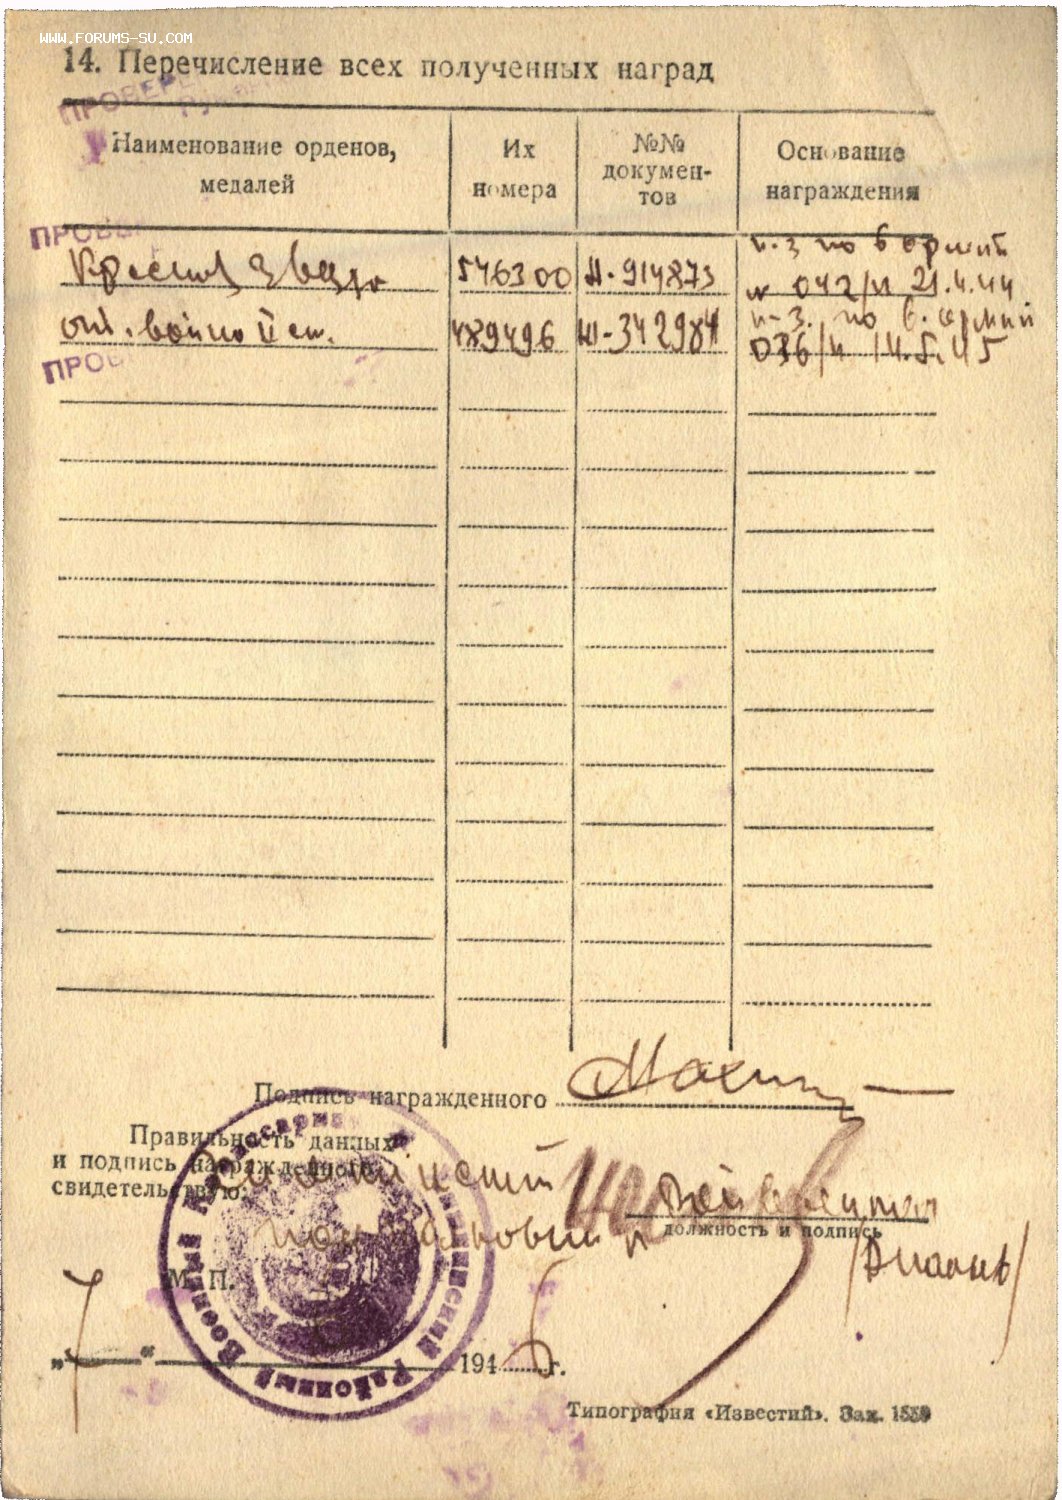 WWW.FORUMS-SU.COM
14. Перечисление всех полученных наград
ПРОВЕРЕ
Наименование орденов, медалей
Их номера
№№ докумен-тов
Основание награждения
ПРОВЕ
Красная Звезда 546300 А-914873 п-з по 6 армии № 042/н 21.4.44
от. войны II ст. 489496 342984 п-з. по 6. армии 036/н 14.5.45
ПРОВ
Подпись награжденного
Правильность данных
и подпись награжденного
свидетельствую:
должность и подпись
М. П.
„7“ 1946 г.
Районный Военный Комиссариат
Типография «Известий». Зак. 1559